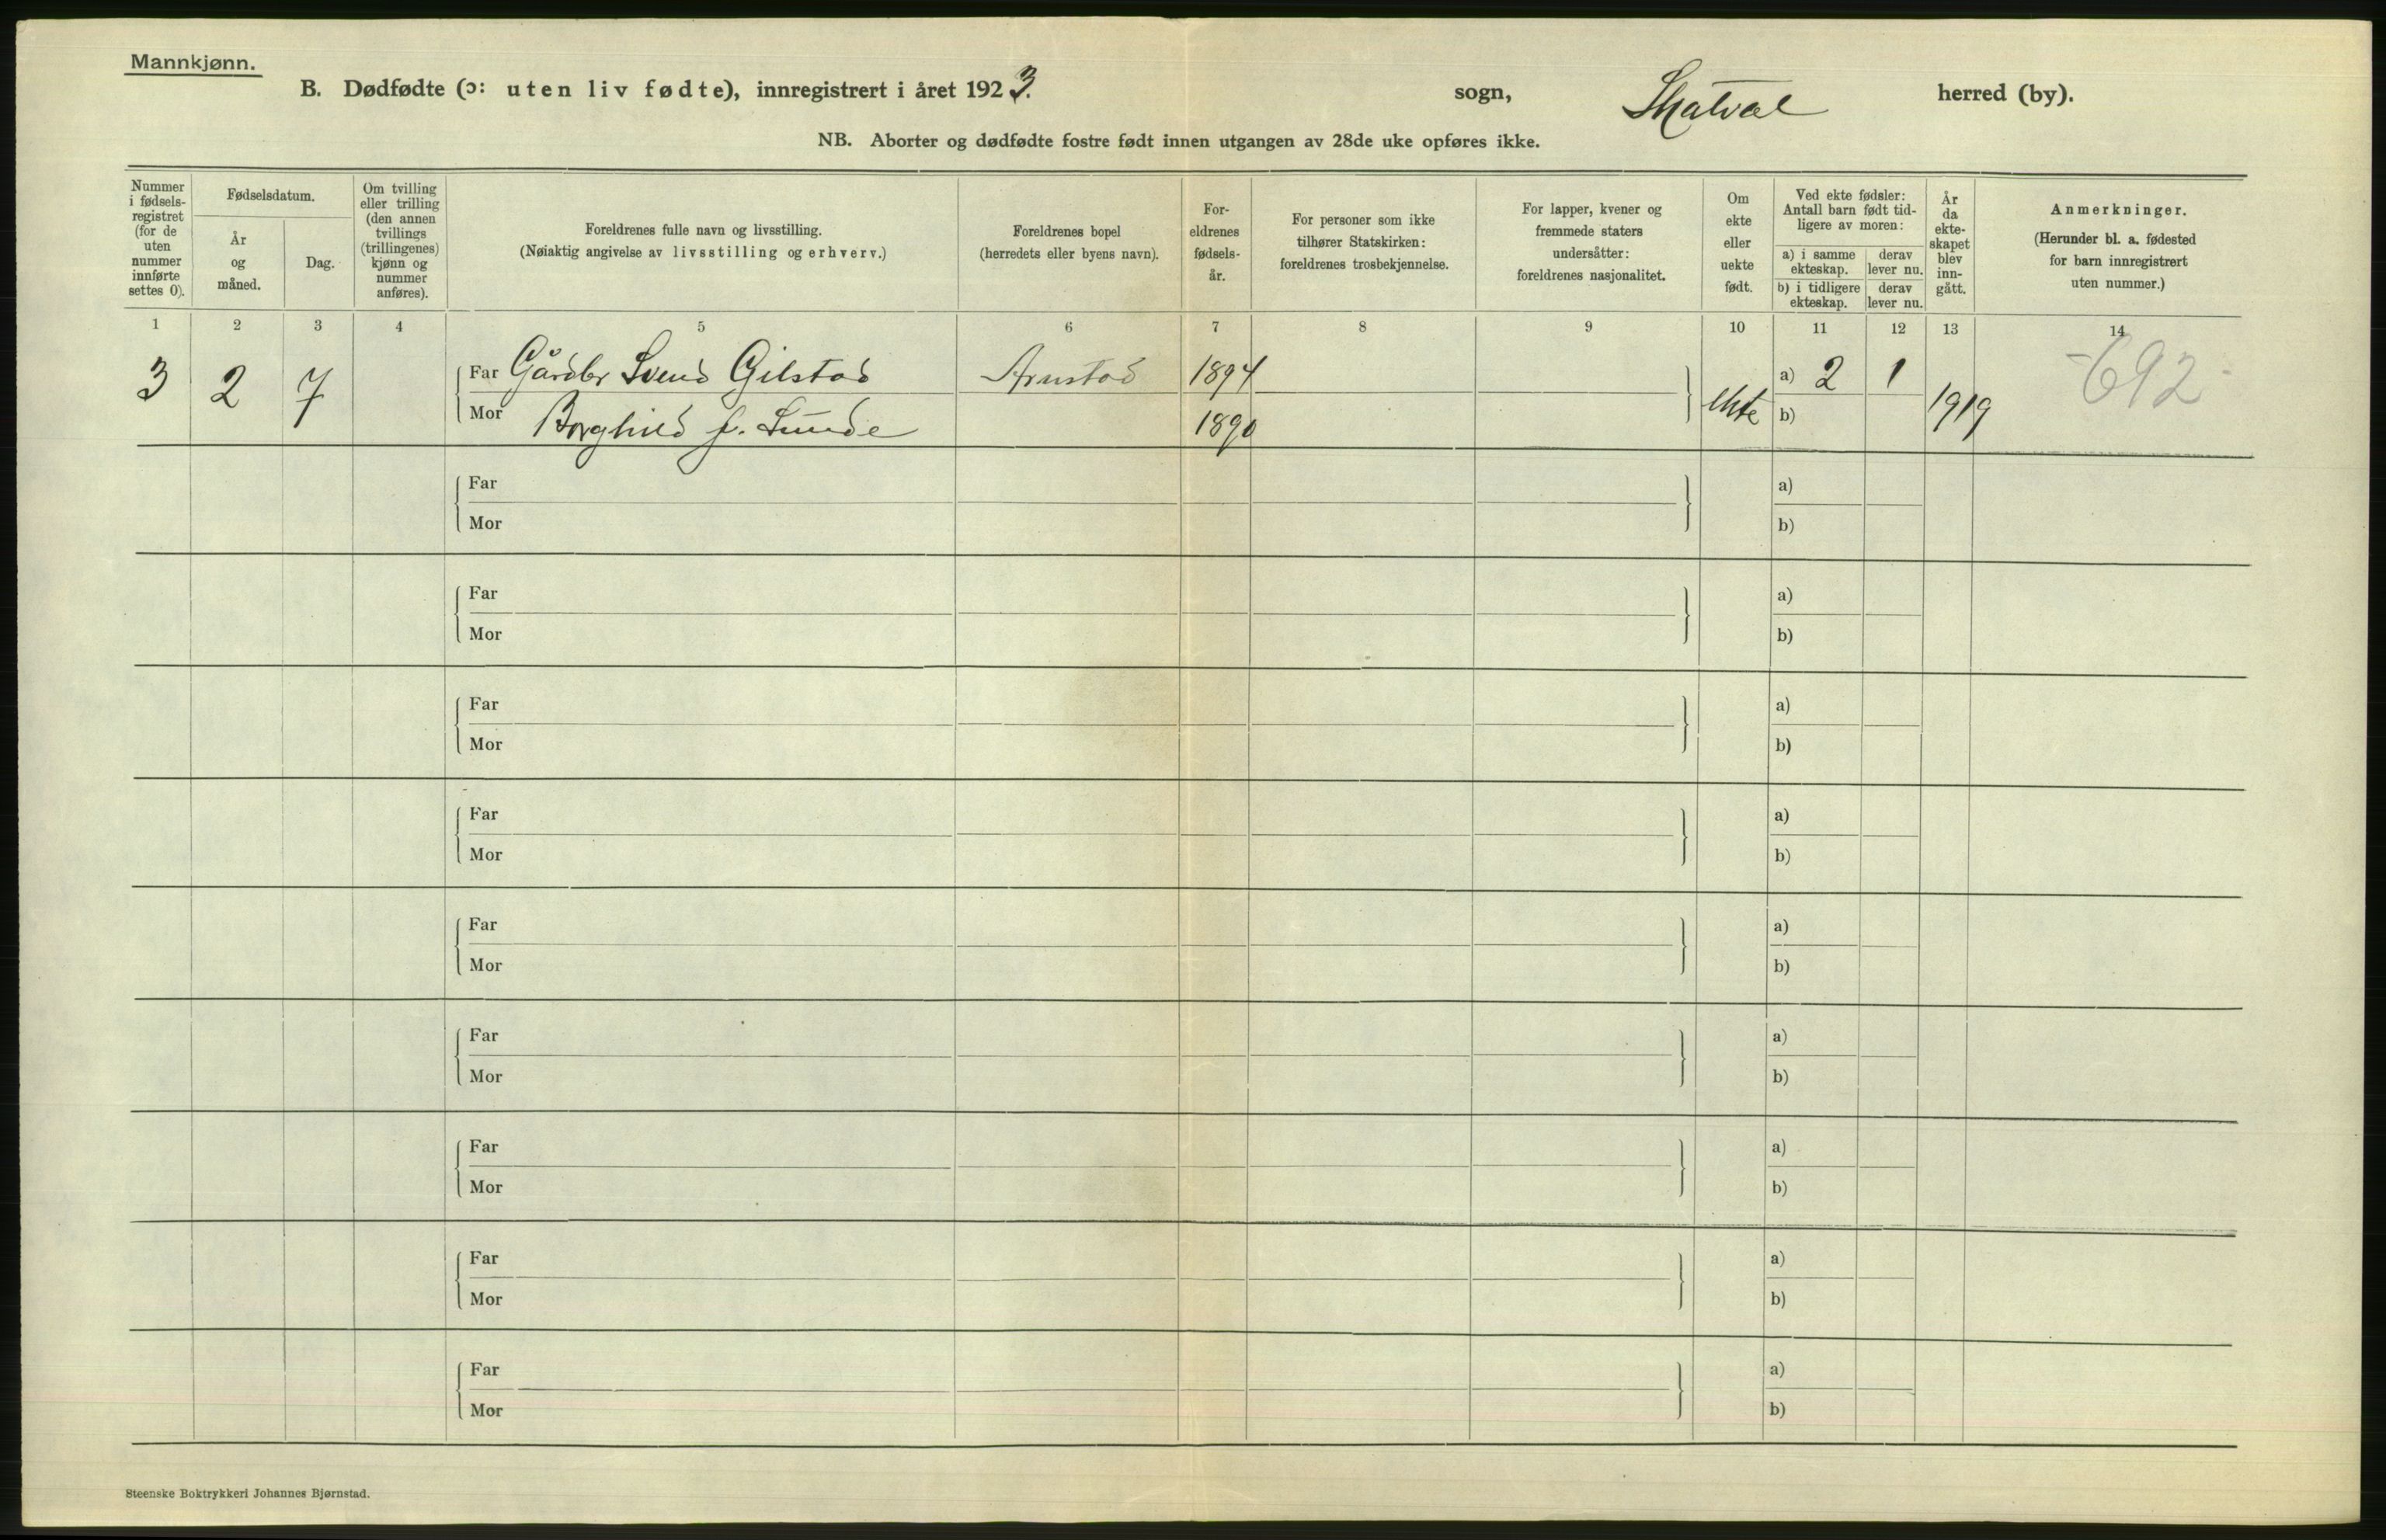 Mannkjønn.
B. Dødfødte (ɔ: uten liv fødte), innregistrert i året 1923. sogn, Skatval herred (by).
NB. Aborter og dødfødte fostre født innen utgangen av 28de uke opføres ikke.
Nummer i fødsels-registret (for de uten nummer innførte settes 0).
Fødselsdatum.
År og måned.
Dag.
Om tvilling eller trilling (den annen tvillings (trillingenes) kjønn og nummer anføres).
Foreldrenes fulle navn og livsstilling.
(Nøiaktig angivelse av livsstilling og erhverv.)
Foreldrenes bopel
(herredets eller byens navn).
For-eldrenes fødsels-år.
For personer som ikke tilhører Statskirken: foreldrenes trosbekjennelse.
For lapper, kvener og fremmede staters undersåtter: foreldrenes nasjonalitet.
Om ekte eller uekte født.
Ved ekte fødsler: Antall barn født tid-ligere av moren:
a) i samme ekteskap.
derav lever nu.
b) i tidligere ekteskap.
derav lever nu.
År da ekte-skapet blev inn-gått.
Anmerkninger.
(Herunder bl. a. fødested for barn innregistrert uten nummer.)
1 2 3 4 5 6 7 8 9 10 11 12 13 14
3 2 7 Far Gårdbr Svend Gilstad Arnstad 1894 ekte a) 2 1 1919 692
Mor Borghild f. Sunde 1890 b)
Far a)
Mor b)
Far a)
Mor b)
Far a)
Mor b)
Far a)
Mor b)
Far a)
Mor b)
Far a)
Mor b)
Far a)
Mor b)
Far a)
Mor b)
Far a)
Mor b)
Steenske Boktrykkeri Johannes Bjørnstad.